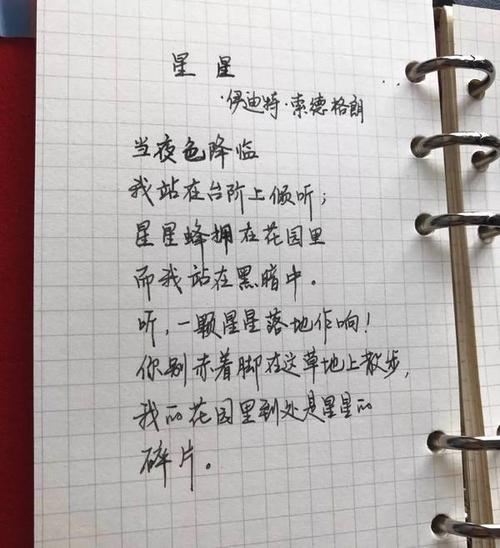 星星
·伊迪特·索德格朗
当夜色降临
我站在台阶上倾听；
星星蜂拥在花园里
而我站在黑暗中。
听，一颗星星落地作响！
你别赤着脚在这草地上散步，
我的花园里到处是星星的
碎片。